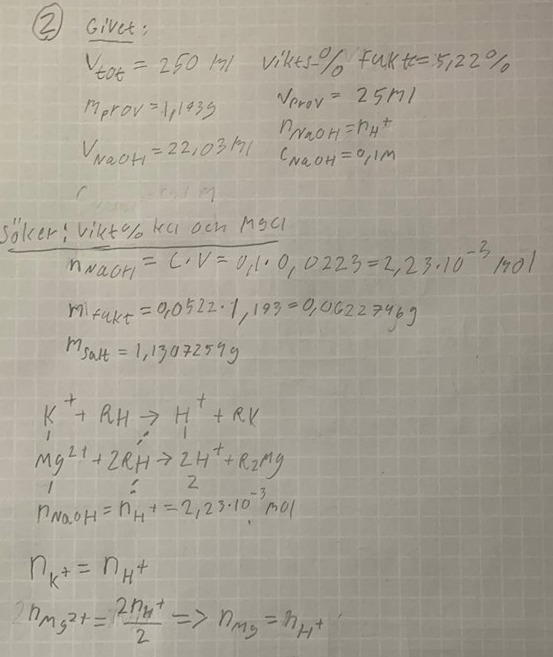 ② Givet:
V_tot = 250 ml vikts-% fukt = 5,22%
m_prov = 1,193g
V_prov = 25ml
n_NaOH = n_H+
V_NaOH = 22,03 ml
C_NaOH = 0,1M
Söker: vikt% KCl och MgCl
n_NaOH = C·V = 0,1·0,0223 = 2,23·10^-3 mol
m_fukt = 0,0522·1,193 = 0,0622746g
m_salt = 1,1307254g
K^+ + RH → H^+ + RK
1 1
Mg^2+ + 2RH → 2H^+ + R₂Mg
1 2
n_NaOH = n_H+ = 2,23·10^-3 mol
n_K+ = n_H+
2n_Mg2+ = 2n_H+/2 => n_Mg = n_H+